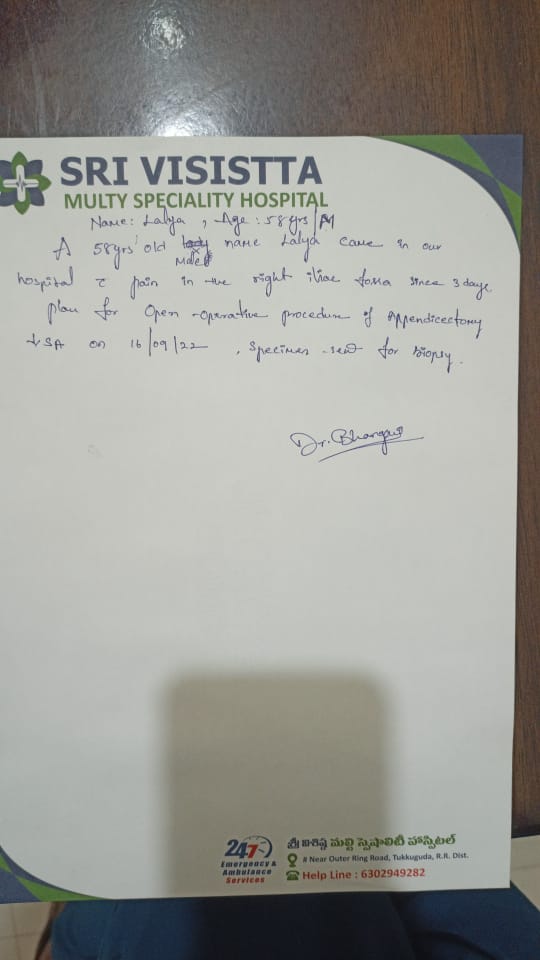 SRI VISISTTA
MULTY SPECIALITY HOSPITAL
Name: Lalya, Age: 58yrs/M
A 58yrs' old name Lalya came in our
Male
hospital c pain in the right iliac fossa since 3 days
plan for Open-operative procedure of Appendicectomy
↓SA on 16/09/22, Specimen sent for Biopsy.
Dr.
24x7
Emergency &
Ambulance
Services
శ్రీ విశిష్ఠ మల్టి స్పెషాలిటీ హాస్పిటల్
# Near Outer Ring Road, Tukkuguda, R.R. Dist.
Help Line : 6302949282